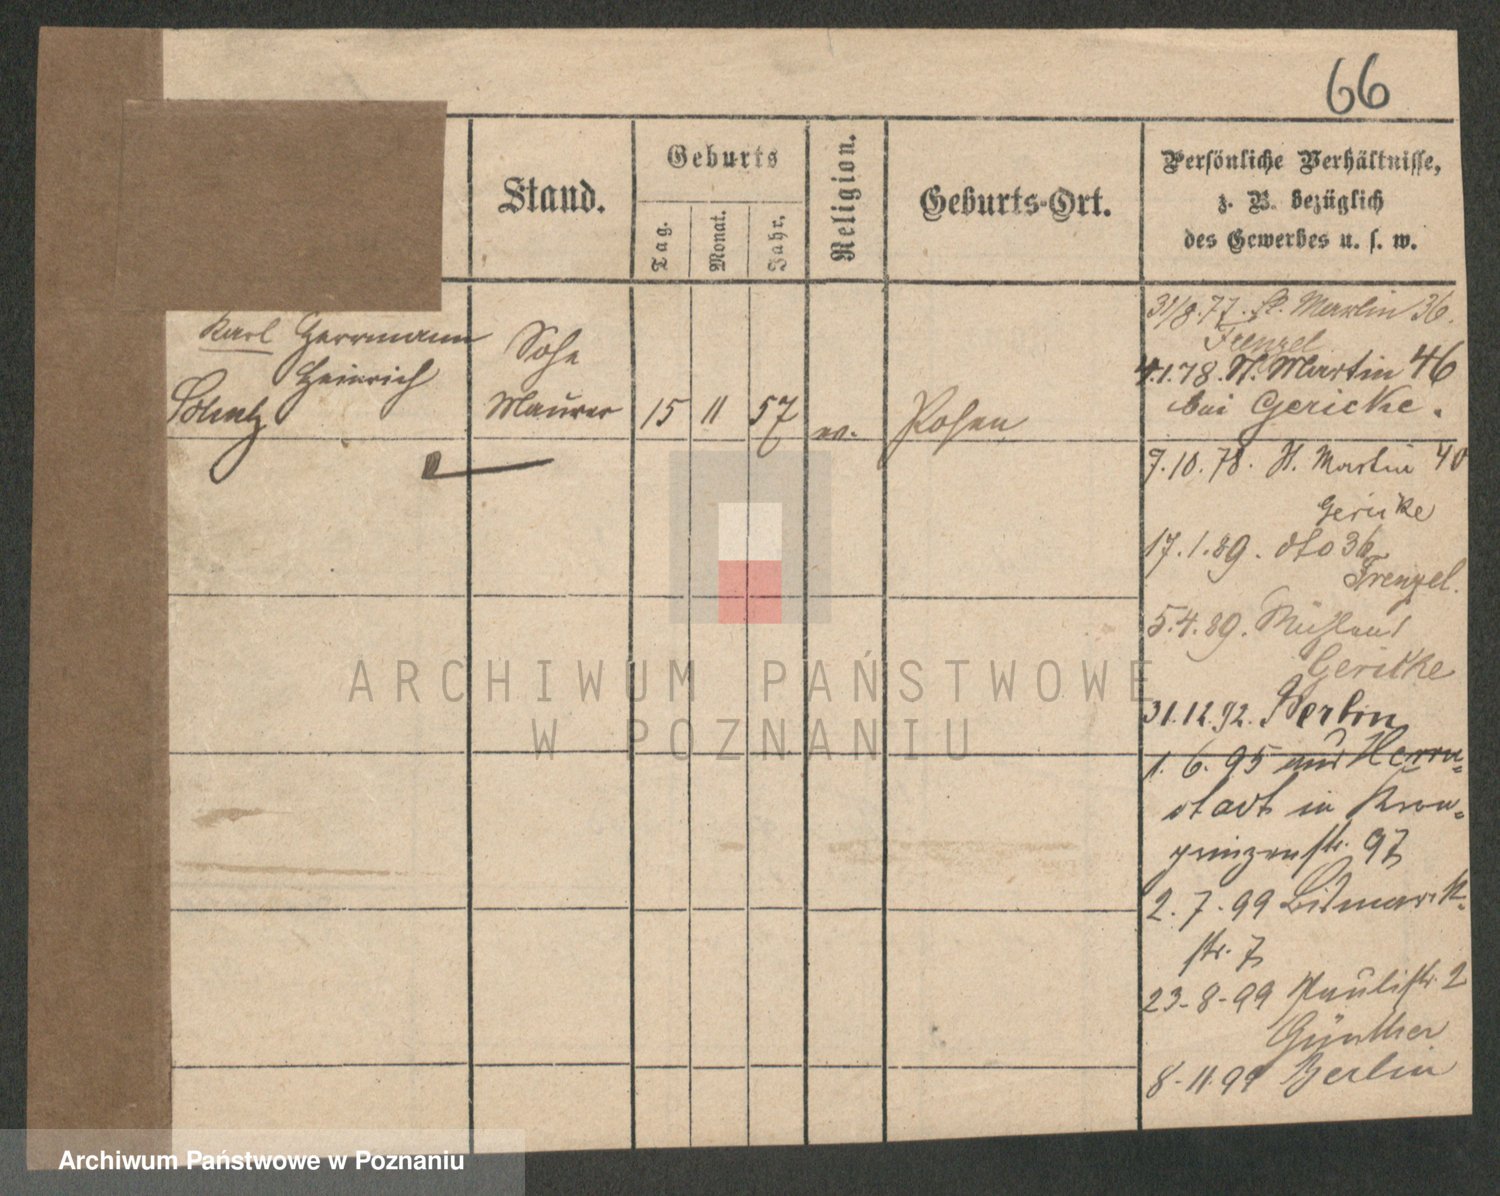 66
Stand.
Geburts
Tag.
Monat.
Jahr.
Religion.
Geburts-Ort.
Persönliche Verhältnisse,
z. B. bezüglich
des Gewerbes u. s. w.
Karl Herrmann
Heinrich
Sohn
Maurer
15 11 57
ev.
Posen
31/8.77. St. Martin 36.
Frenzel
4.1.78. St. Martin 46
bei Gericke.
7.10.78. St. Martin 40
Gericke
17.1.89. dto 36
Frenzel.
5.4.89.
Gericke
31.12.92. Berlin
1. 6. 95 aus Herrn-
stadt in Kron-
prinzenstr. 97
2. 7. 99 Bismarck-
str. 7
23-8-99 Paulistr. 2
Günther
8-11.99 Berlin
ARCHIWUM PAŃSTWOWE
W POZNANIU
Archiwum Państwowe w Poznaniu